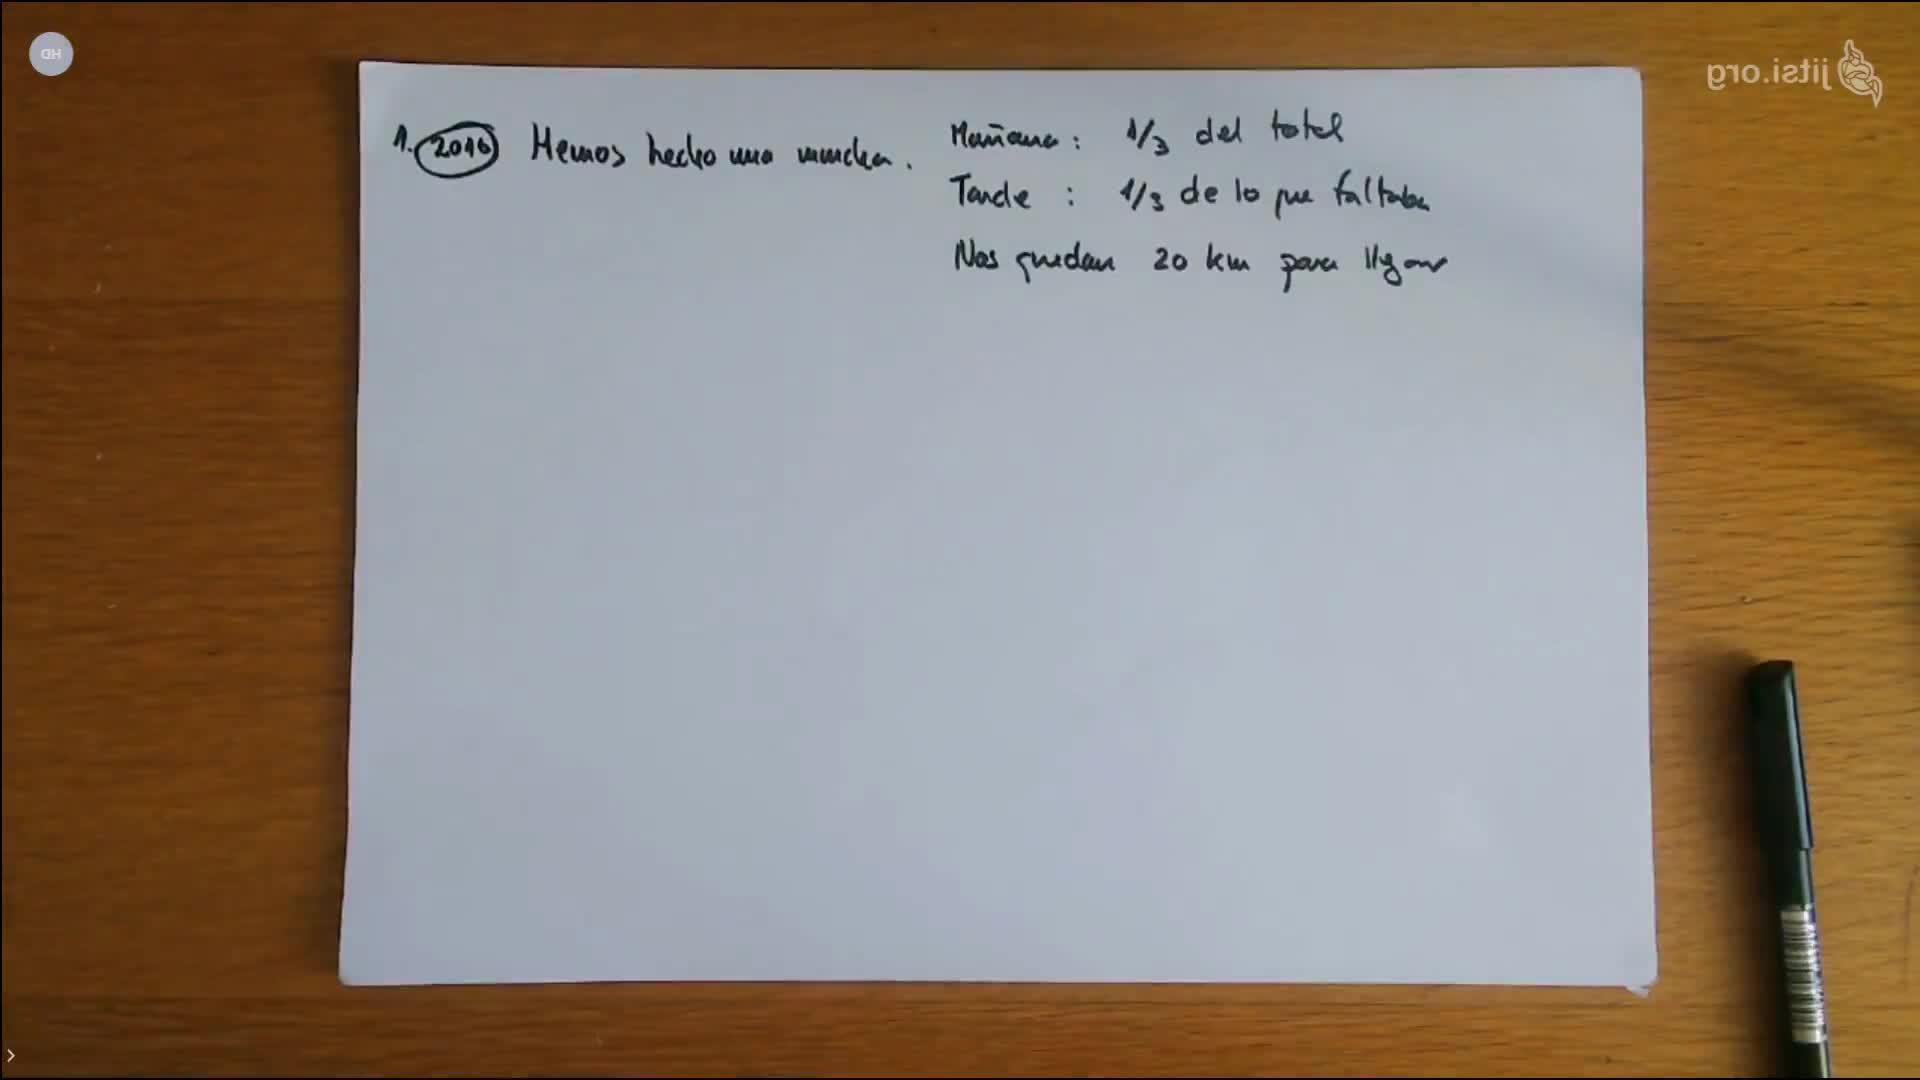 HD
jitsi.org
1. 2016 Hemos hecho una marcha.
Mañana: 1/3 del total
Tarde: 1/3 de lo que faltaba
Nos quedan 20 km para llegar